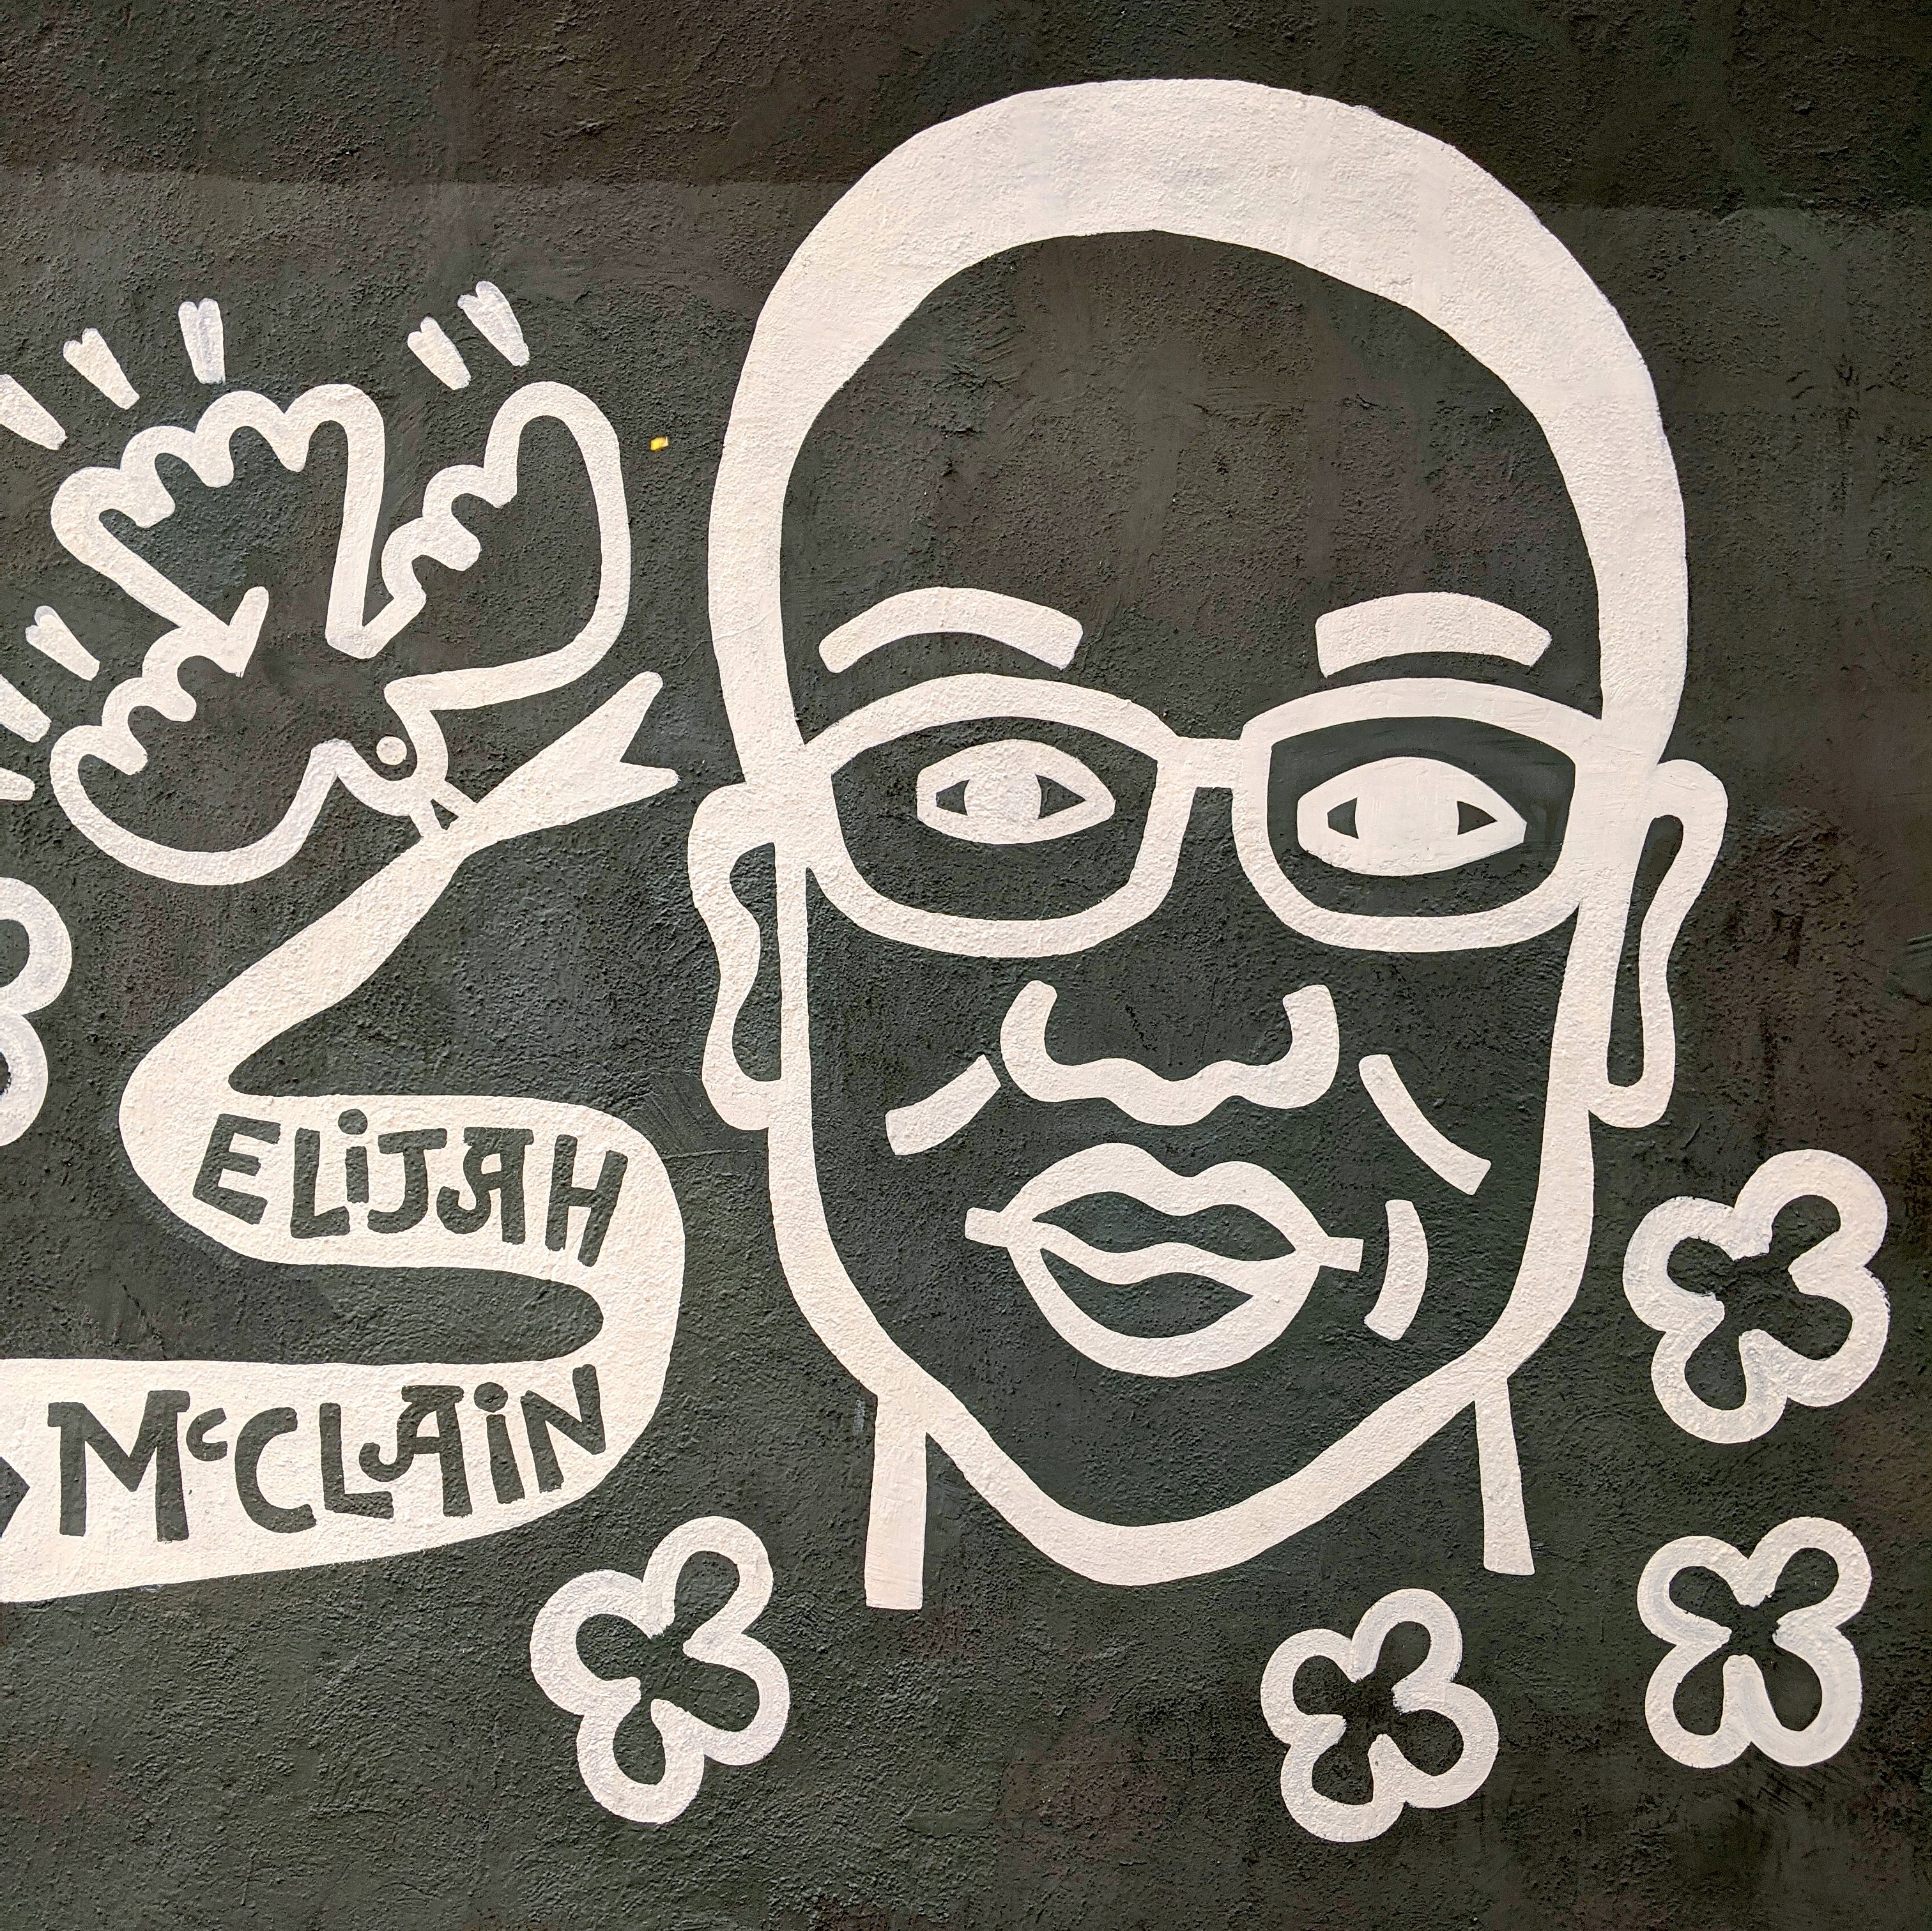 ELiJAH
McCLAiN